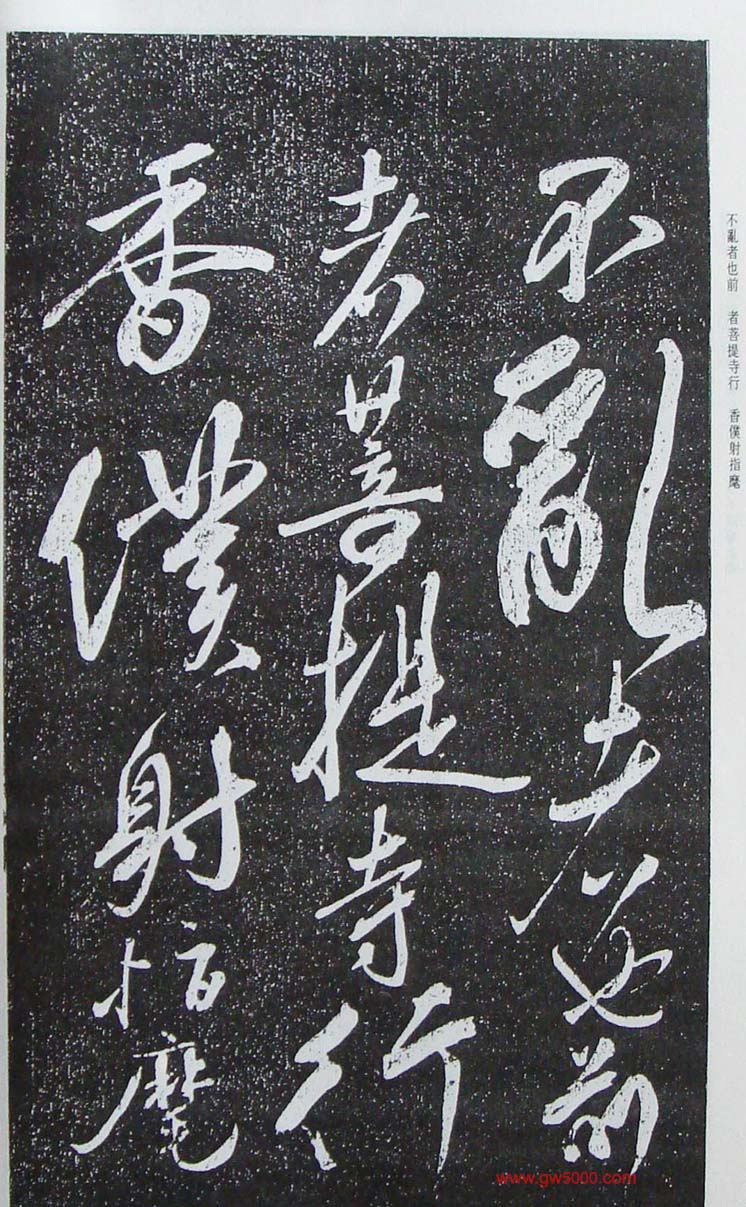 不亂者也前
者菩提寺行
香僕射指麾
不亂者也前 者菩提寺行 香僕射指麾
www.gw5000.com